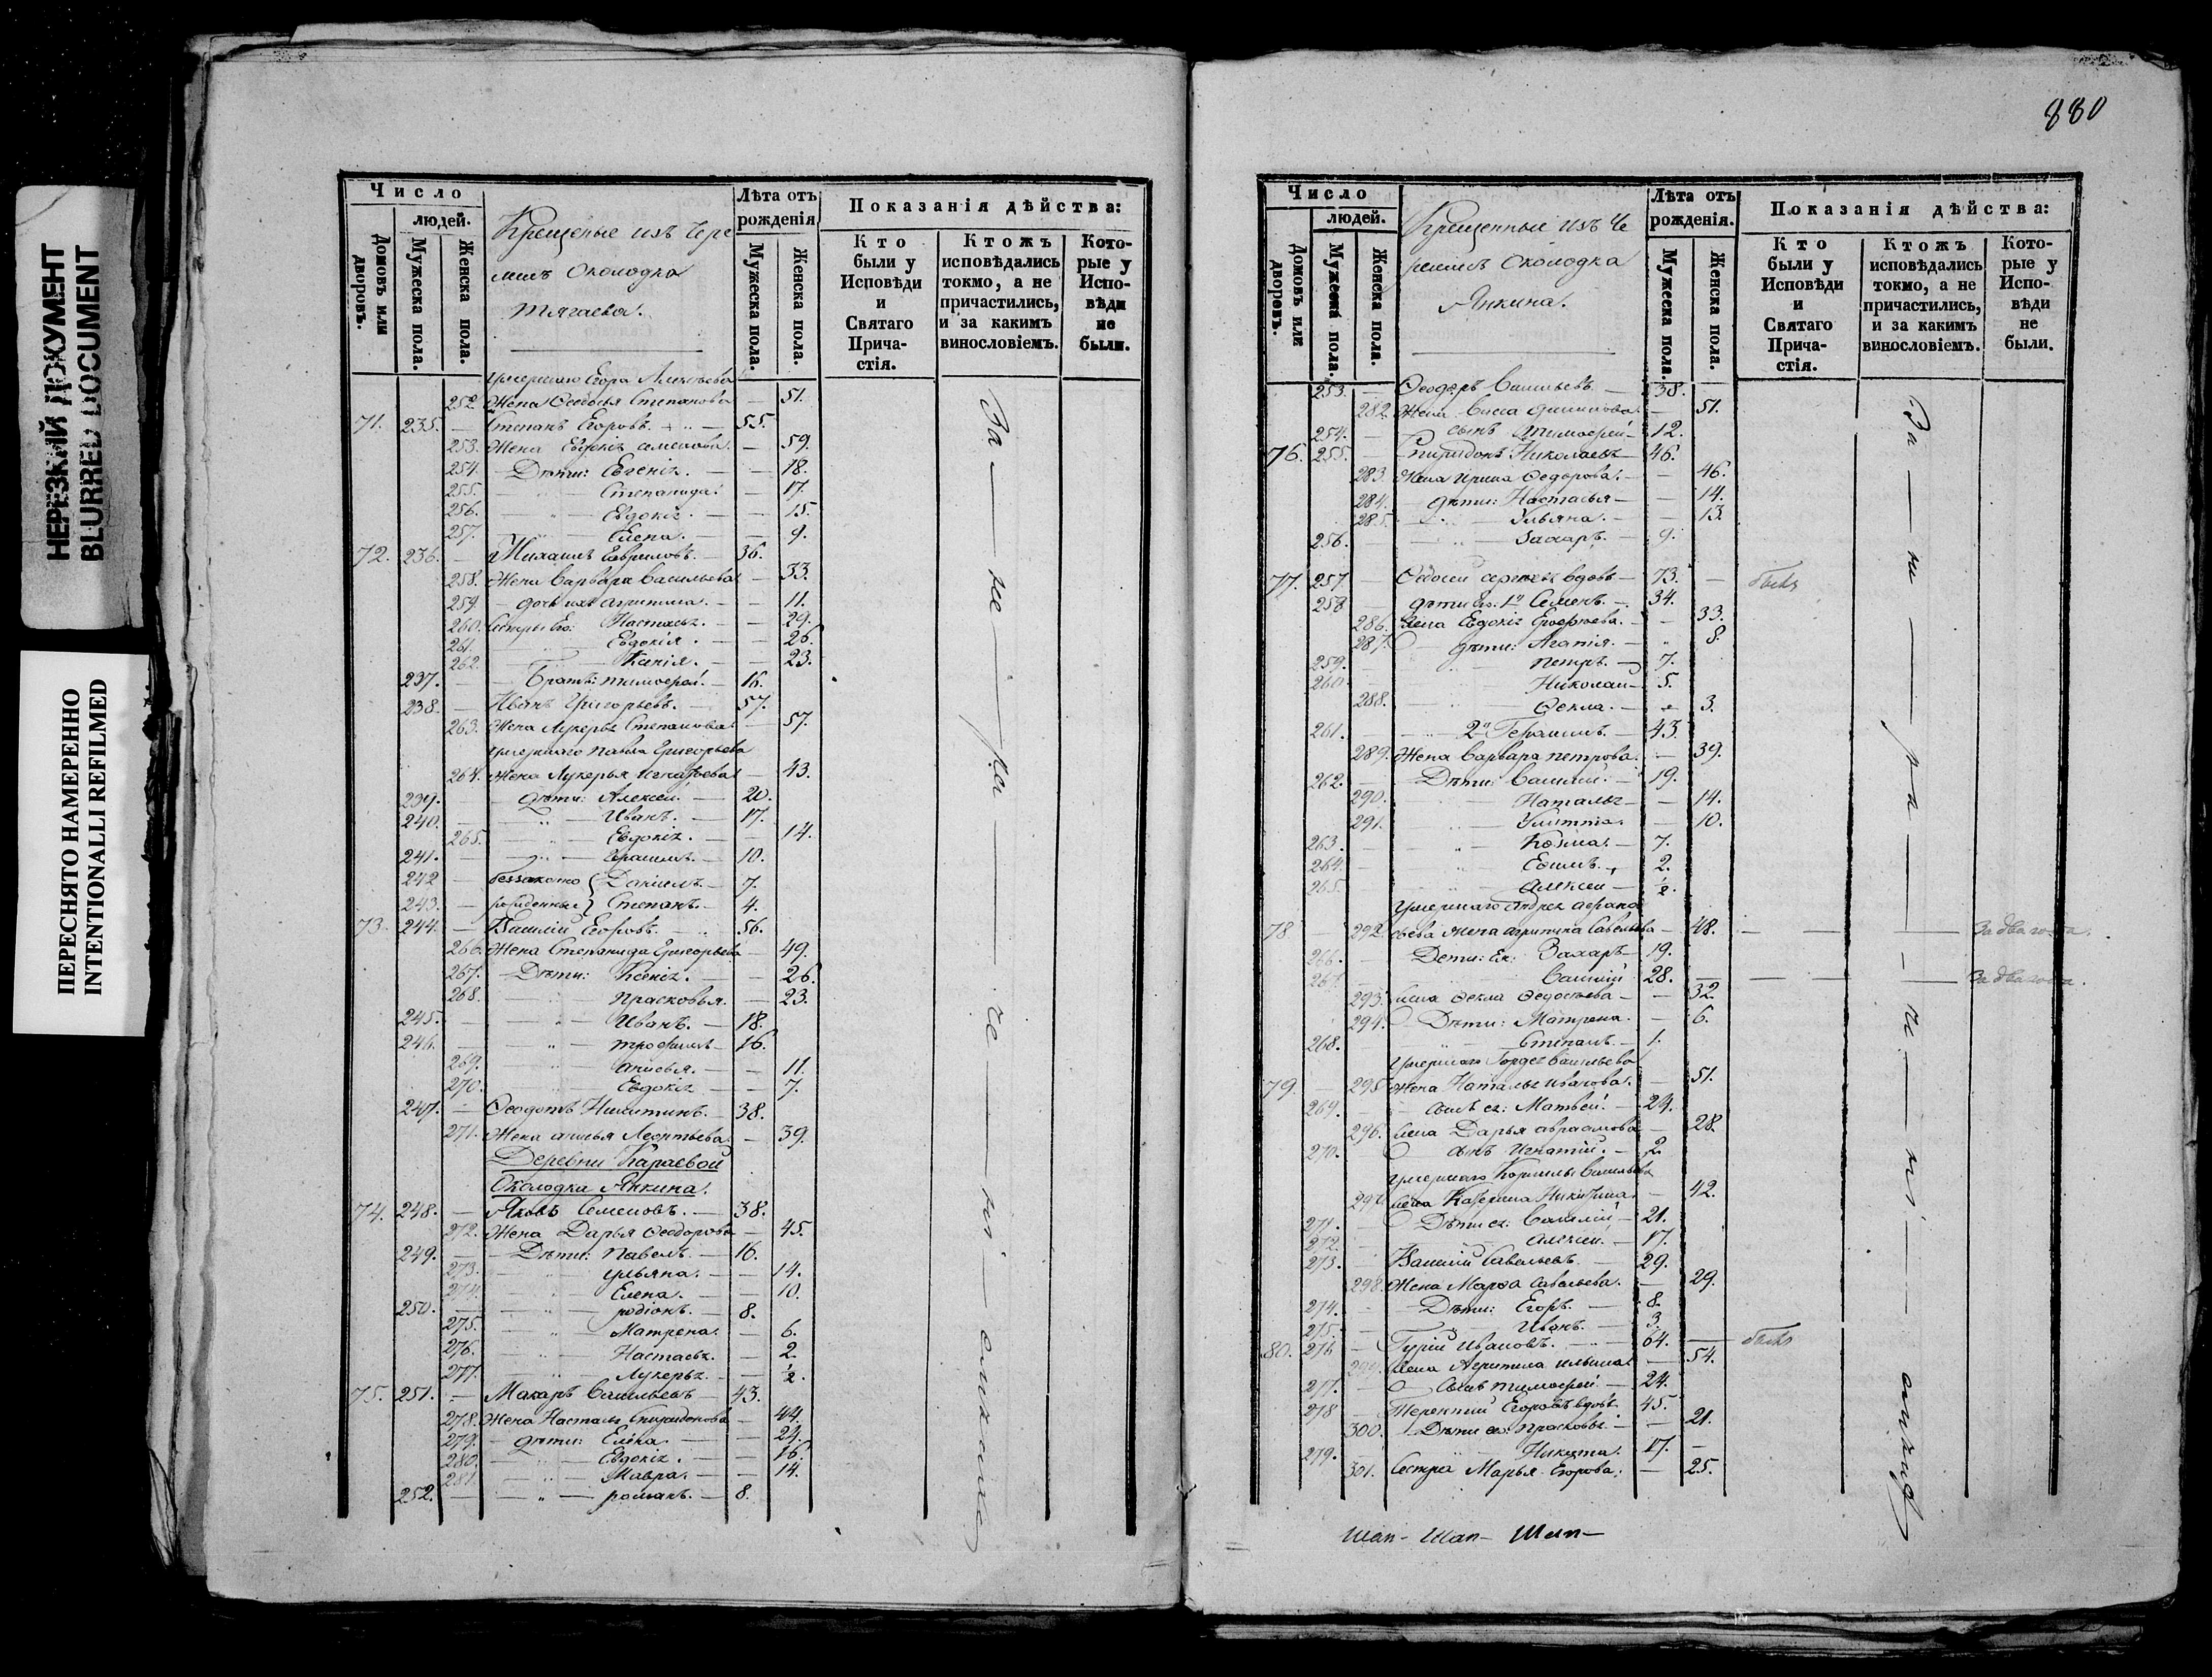 НЕРЕЗКИЙ ДОКУМЕНТ
BLURRED DOCUMENT
ПЕРЕСНЯТО НАМЕРЕННО
INTENTIONALLI REFILMED
Число
людей.
Домовъ или дворовъ.
Мужеска пола.
Женска пола.
Крещеные изъ Чере
мисъ Околодка
Тягаева.
Лѣта отъ рожденія
Мужеска пола.
Женска пола.
Показанія дѣйства:
Кто были у Исповѣди и Святаго Прича-стія.
Ктожъ исповѣдались токмо, а не причастились, и за какимъ винословіемъ.
Кото-рые у Испо-вѣди не были.
умершаго Егора Алексѣева
252. Жена Федосья Степанова — 51.
71. 235. — Степанъ Егоровъ. — 55.
253. Жена Евдокія Семенова. — 59.
254. — Дѣти: Евгенія. — 18.
255. — Степанида. — 17.
256. — Евдокія. — 15.
257. — Елена. — 9.
72. 236. — Михаилъ Гавриловъ. — 36.
258. Жена Варвара Васильева — 33.
259. — дочь ихъ Агрипина. — 11.
260. Сестры Его: Настасья. — 29.
261. — Евдокія. — 26.
262. — Ксенія. — 23.
237. — Братъ: Тимофей. — 16.
238. — Иванъ Григорьевъ. — 57.
263. Жена Лукерья Степанова — 57.
умершаго Павла Григорьева
264. Жена Лукерья Игнатьева — 43.
239. — дѣти: Алексей. — 20.
240. — Иванъ. — 17.
265. — Евдокія. — 14.
241. — Герасимъ. — 10.
242 — беззаконно Данилъ. — 7.
243. — рожденные Степанъ. — 4.
73. 244. — Василій Егоровъ. — 56.
266. Жена Степанида Григорьева — 49.
267. — Дѣти: Ксенія. — 26.
268. — Прасковья. — 23.
245. — Иванъ. — 18.
246. — Трофимъ — 16.
269. — Анисья. — 11.
270. — Евдокія — 7.
247. — Феодотъ Никитинъ. — 38.
271. Жена Анисья Леонтьева. — 39.
Деревни Караевой
Околодка Янкина.
74. 248. — Яковъ Семеновъ. — 38.
272. Жена Дарья Феодорова — 45.
249. — Дѣти: Павелъ. — 16.
273. — Ульяна. — 14.
274. — Елена. — 10.
250. — Родіонъ. — 8.
275. — Матрена. — 6.
276. — Настасья. — 2.
277. — Лукерья. — ½.
75. 251. — Макаръ Васильевъ — 43.
278. Жена Настасья Спиридонова — 44.
279. — дѣти: Елена. — 24.
280. — Евдокія. — 16.
281. — Мавра. — 14.
252. — Романъ. — 8.
За — не — ра — че — ні —
880
Число
людей.
Домовъ или дворовъ.
Мужеска пола.
Женска пола.
Крещенные изъ Че
ремисъ Околодка
Янкина.
Лѣта отъ рожденія.
Мужеска пола.
Женска пола.
Показанія дѣйства:
Кто были у Исповѣди и Святаго Прича-стія.
Ктожъ исповѣдались токмо, а не причастились, и за какимъ винословіемъ.
Кото-рые у Испо-вѣди не были.
253. — Феодоръ Васильевъ — 38.
282. Жена Васса Филипова — 51.
254. — сынъ Тимофей — 12.
76. 255. — Спиридонъ Николаевъ — 46.
283. Жена Ирина Федорова. — 46.
284. — дѣти: Настасья — 14.
285. — Ульяна. — 13.
256. — Захаръ. — 9.
77. 257. Федосей Сергѣевъ вдовъ — 73. — былъ
258 — дѣти Его: 1й Семенъ. — 34.
286. Жена Евдокія — 33.
287. — дѣти: Агапія. — 8.
259. — Петръ. — 7.
260. — Николай — 5.
288. — Фекла. — 3.
261. — 2й Герасимъ. — 43.
289. Жена Варвара Петрова. — 39.
262. — Дѣти: Василій. — 19.
290. — Наталья — 14.
291. — Улитта — 10.
263. — Козма. — 7.
264. — Ефимъ. — 2.
265. — Алексей — ½.
умершаго Андрея Афана
78 — 292. сьева жена Агрипина Савельева — 48. — За два года.
266. — Дети: Ея: Захаръ — 19.
267. — Василій 28. — За два года.
293. Жена Фекла Федосѣева — 32.
294. — Дѣти: Матрена. — 6.
268. — Степанъ. — 1.
умершаго Гордѣя Васильева
79. — 295. Жена Наталья Иванова. — 51.
269. — сынъ ея: Матвей. — 24.
296. Жена Дарья — 28.
270. — сынъ Игнатій. — 2.
умершаго Корнилы Васильева
297. Жена Катерина Никитина — 42.
271. — Дѣти ея: Василій — 21.
272. — Алексей. — 17.
273. — Василій Савельевъ. — 29.
298. Жена Марфа Савельева. — 29.
274. — Дѣти: Егоръ. — 8.
275. — Иванъ. — 3.
80. 276 — Гурій Ивановъ. — 64. — былъ
299. Жена Агрипина Ильина — 54.
277. — Сынъ Тимофей. — 24.
278 — Терентій Егоровъ вдовъ. — 45.
300. Дѣти его: Прасковья — 21.
279. — Никита. — 17.
301. Сестра Марья Егорова. — 25.
За — не — ра — че — ні —
Шап- Шап- Шап-